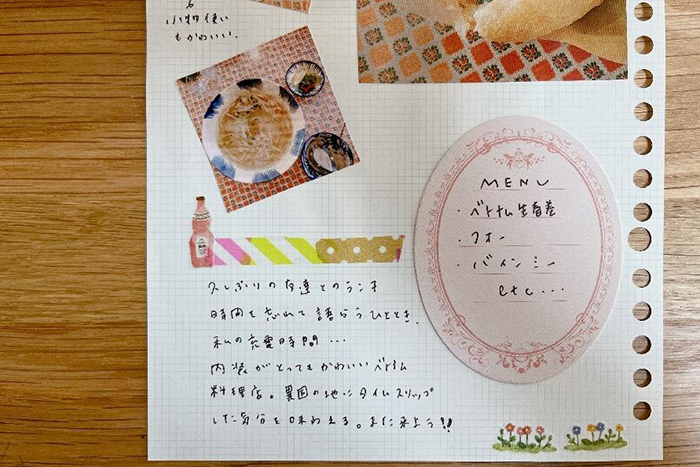 る
小物使い
もかわいい.
MENU
・ベトナム生春巻
・フォー
・バインミー
etc...
久しぶりの友達とのランチ
時間を忘れて語らうひととき.
私の充電時間...
内装がとってもかわいいベトナム
料理店。異国の地にタイムスリップ
した気分を味わえる。また来よう!!